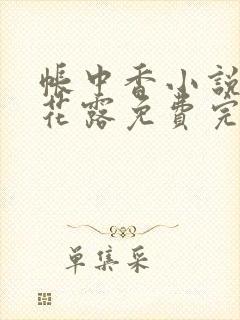 帳中香小說
花露免費完
單集采